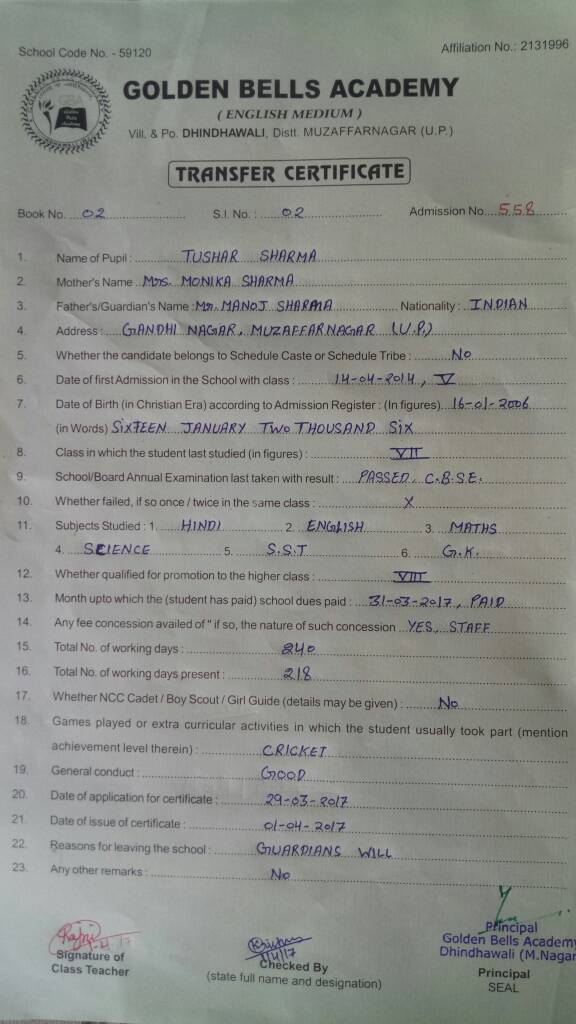 School Code No. - 59120
Affiliation No.: 2131996
GOLDEN BELLS ACADEMY
( ENGLISH MEDIUM )
Vill. & Po. DHINDHAWALI, Distt. MUZAFFARNAGAR (U.P.)
TRANSFER CERTIFICATE
Book No. 02 S.I. No. : 02 Admission No. 558
1. Name of Pupil : TUSHAR SHARMA
2. Mother's Name Mrs. MONIKA SHARMA
3. Father's/Guardian's Name : Mr. MANOJ SHARMA Nationality : INDIAN
4. Address : GANDHI NAGAR, MUZAFFARNAGAR (U.P.)
5. Whether the candidate belongs to Schedule Caste or Schedule Tribe : No
6. Date of first Admission in the School with class : 14-04-2014, V
7. Date of Birth (in Christian Era) according to Admission Register : (In figures) 16-01-2006
(in Words) SIXTEEN JANUARY TWO THOUSAND SIX
8. Class in which the student last studied (in figures) : VII
9. School/Board Annual Examination last taken with result : PASSED, C.B.S.E.
10. Whether failed, if so once / twice in the same class : X
11. Subjects Studied : 1. HINDI 2. ENGLISH 3. MATHS
4. SCIENCE 5. S.S.T 6. G.K.
12. Whether qualified for promotion to the higher class : VIII
13. Month upto which the (student has paid) school dues paid : 31-03-2017, PAID
14. Any fee concession availed of " if so, the nature of such concession YES, STAFF
15. Total No. of working days : 240
16. Total No. of working days present : 218
17. Whether NCC Cadet / Boy Scout / Girl Guide (details may be given) : No
18. Games played or extra curricular activities in which the student usually took part (mention
achievement level therein) : CRICKET
19. General conduct : GOOD
20. Date of application for certificate : 29-03-2017
21. Date of issue of certificate : 01-04-2017
22. Reasons for leaving the school : GUARDIANS WILL
23. Any other remarks : No
Signature of
Class Teacher
Checked By
(state full name and designation)
Principal
Golden Bells Academy
Dhindhawali (M.Nagar
Principal
SEAL